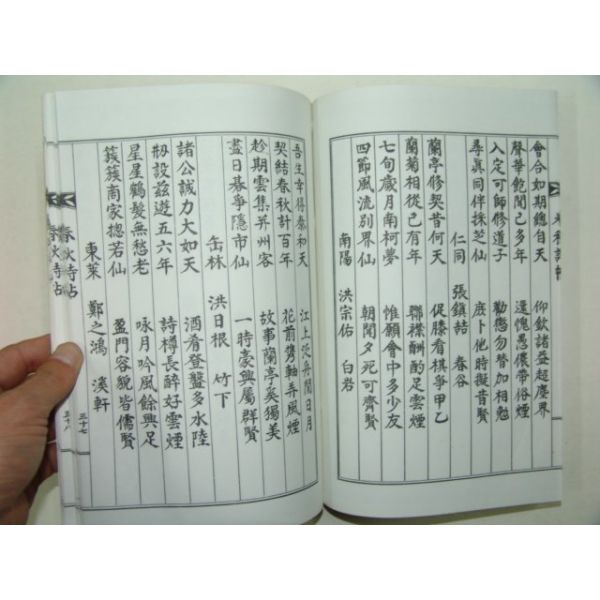 會合如期總自天 仰欽諸益超塵界
聲華飽聞已多年 還愧愚儂帶俗煙
入定可師修道子 勸懲勿替加相勉
尋真同伴採芝仙 庶卜他時擬昔賢
仁同 張鎮喆 春谷
蘭亭修契昔何天 促膝看棋爭甲乙
蘭菊相從已有年 聯襟酬酌足雲煙
七旬歲月南柯夢 惟願會中多少友
四節風流別界仙 朝聞夕死可齊賢
南陽 洪宗佑 白岩
吾生幸得泰和天 江上泛舟閒日月
契結春秋計百年 花前携軸弄風煙
趁期雲集幷州客 故事蘭亭奚獨美
盡日碁爭隱市仙 一時豪興屬群賢
缶林 洪日根 竹下
諸公誠力大如天 酒肴登盤多水陸
刱設玆遊五六年 詩樽長醉好雲煙
星星鶴髮無愁老 咏月吟風餘興足
簇簇商家摠若仙 盈門容貌皆儒賢
東萊 鄭之鴻 漢軒
春秋詩帖 三十七
春秋詩帖 三十八